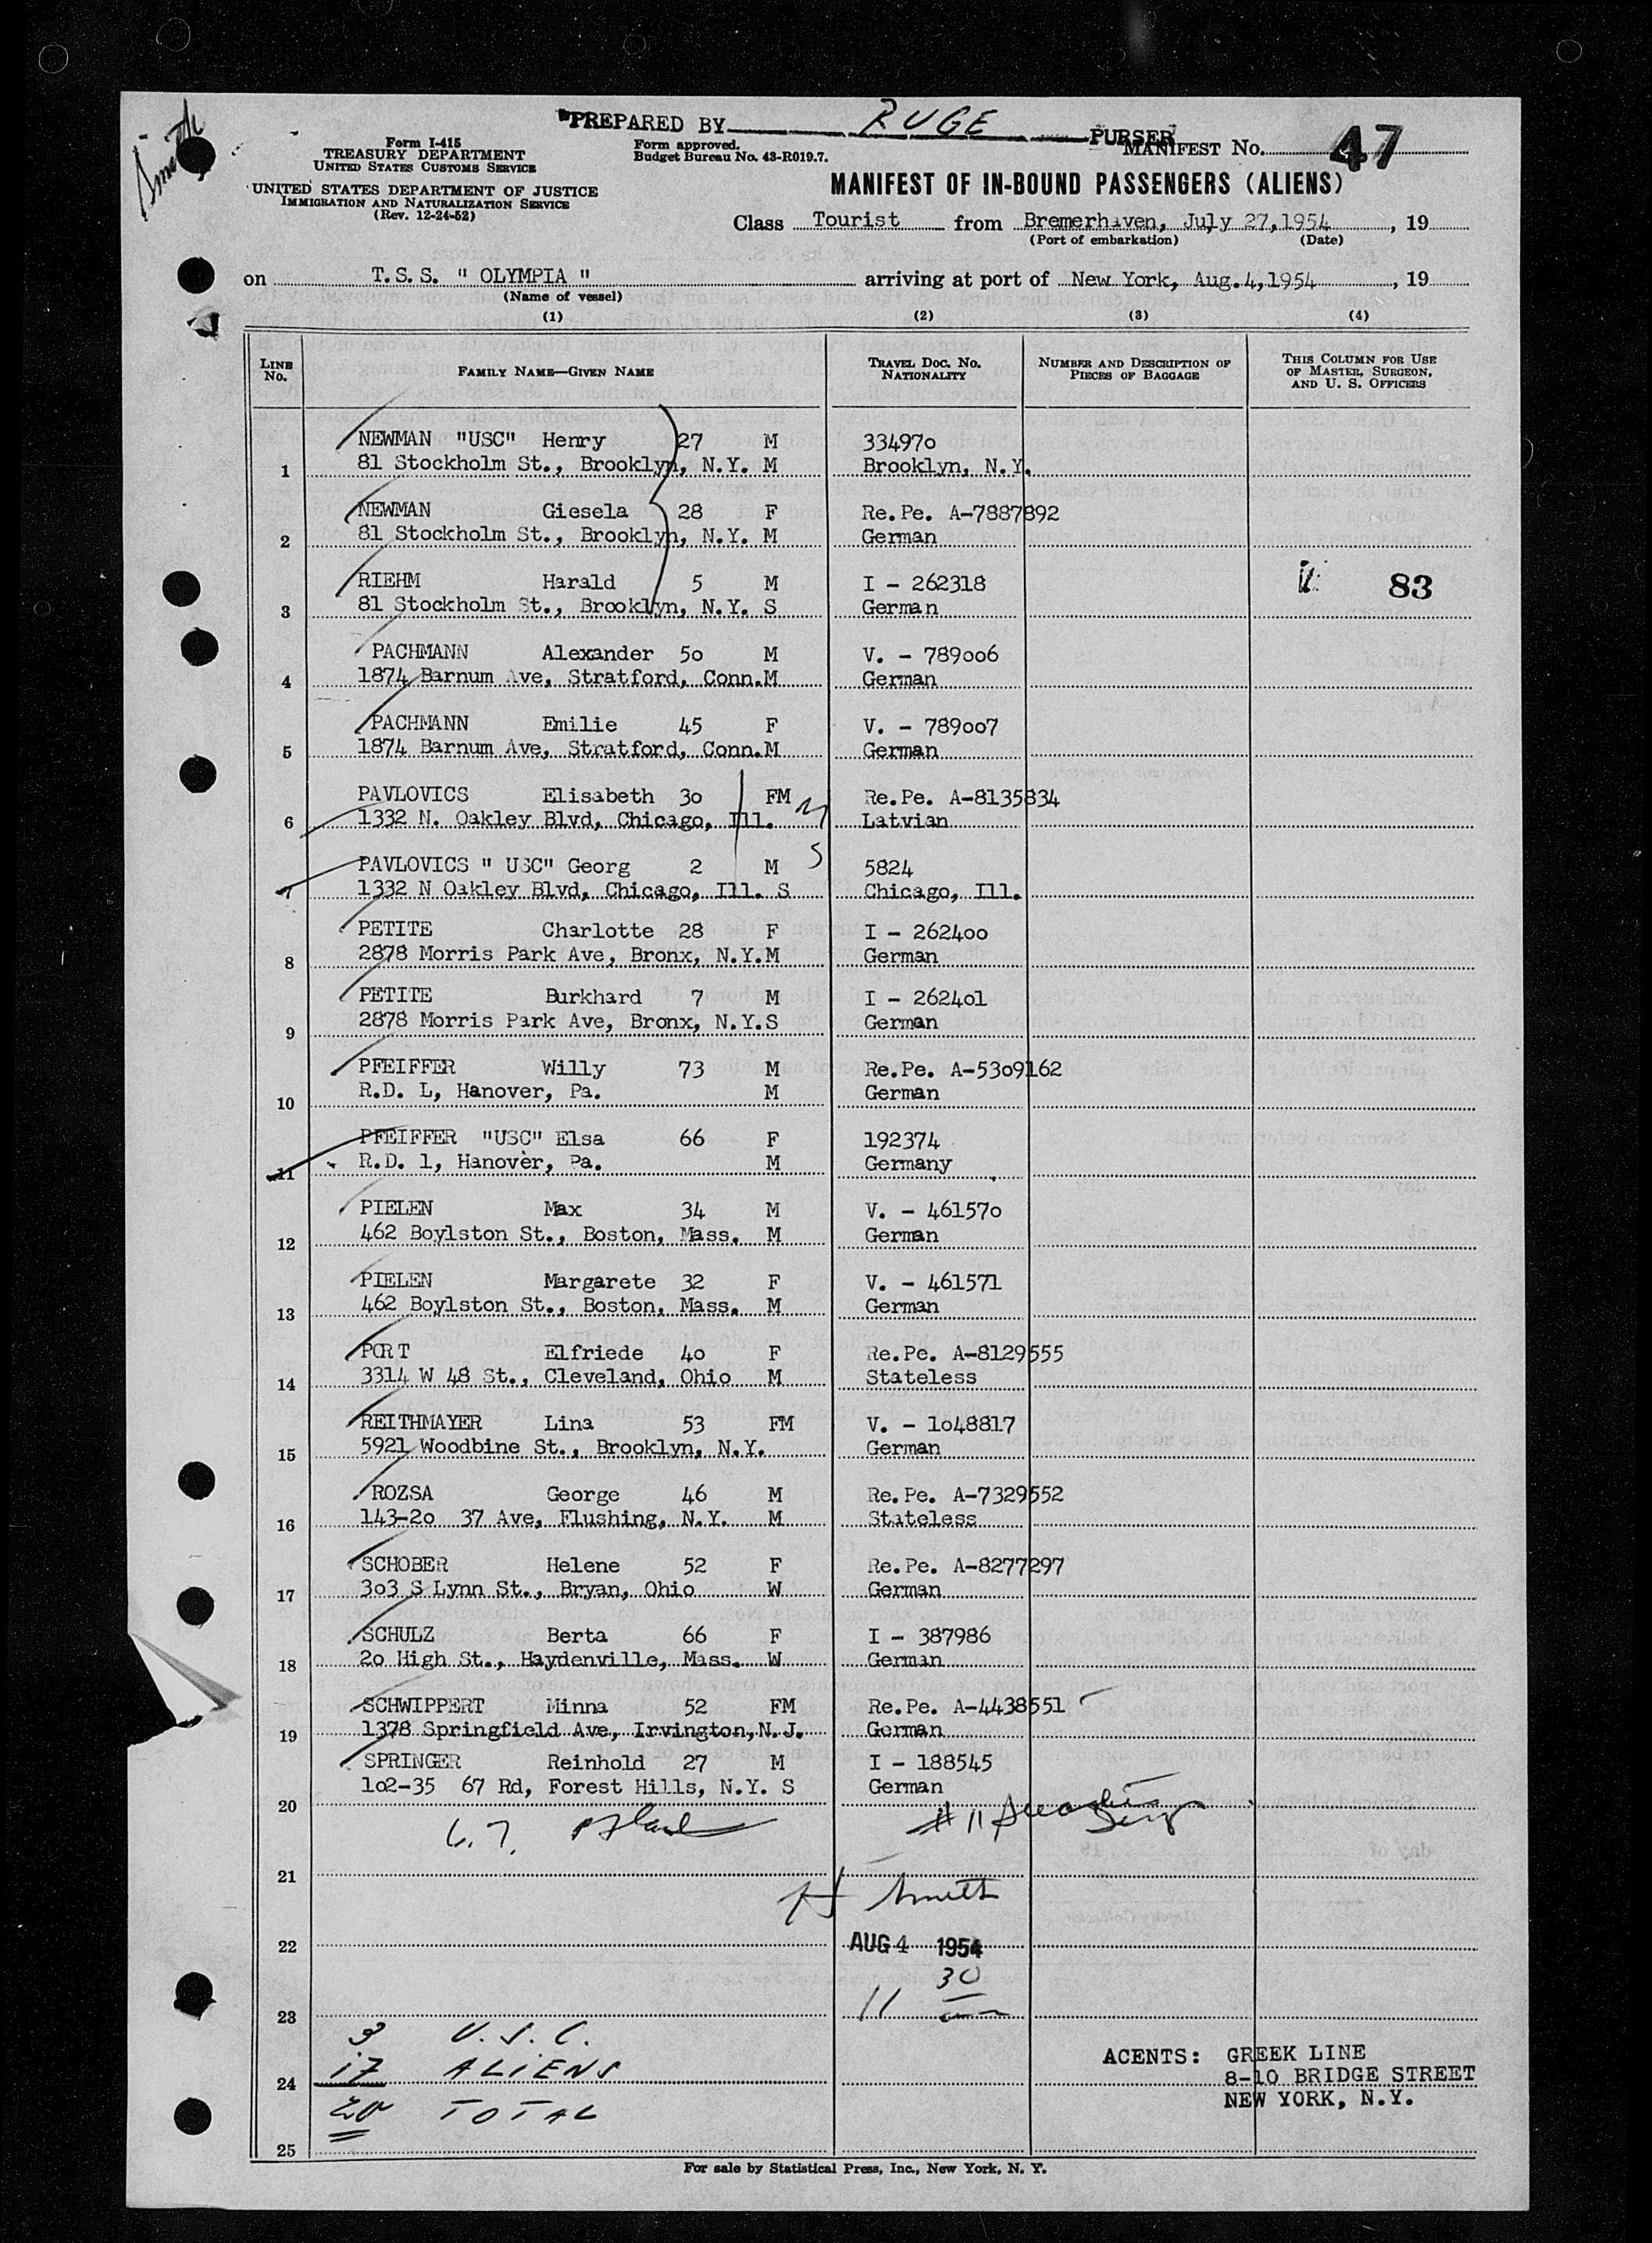 Smith
PREPARED BY RUGE PURSER
Form I-415
TREASURY DEPARTMENT
UNITED STATES CUSTOMS SERVICE
Form approved.
Budget Bureau No. 43-R019.7.
MANIFEST No. 47
UNITED STATES DEPARTMENT OF JUSTICE
IMMIGRATION AND NATURALIZATION SERVICE
(Rev. 12-24-52)
MANIFEST OF IN-BOUND PASSENGERS (ALIENS)
Class Tourist from Bremerhaven, July 27,1954, 19
(Port of embarkation) (Date)
on T.S.S. " OLYMPIA " arriving at port of New York, Aug.4,1954, 19
(Name of vessel)
(1) (2) (3) (4)
LINE No. FAMILY NAME—GIVEN NAME TRAVEL DOC. NO. NATIONALITY NUMBER AND DESCRIPTION OF PIECES OF BAGGAGE THIS COLUMN FOR USE OF MASTER, SURGEON, AND U. S. OFFICERS
NEWMAN "USC" Henry 27 M 33497o
1 81 Stockholm St., Brooklyn, N.Y. M Brooklyn, N.Y.
NEWMAN Giesela 28 F Re.Pe. A-7887892
2 81 Stockholm St., Brooklyn, N.Y. M German
RIEHM Harald 5 M I - 262318 83
3 81 Stockholm St., Brooklyn, N.Y. S German
PACHMANN Alexander 5o M V. - 789oo6
4 1874 Barnum Ave, Stratford, Conn.M German
PACHMANN Emilie 45 F V. - 789oo7
5 1874 Barnum Ave, Stratford, Conn.M German
PAVLOVICS Elisabeth 3o FM M Re.Pe. A-8135834
6 1332 N. Oakley Blvd, Chicago, Ill. Latvian
PAVLOVICS " USC" Georg 2 M S 5824
7 1332 N Oakley Blvd, Chicago, Ill. S Chicago, Ill.
PETITE Charlotte 28 F I - 2624oo
8 2878 Morris Park Ave, Bronx, N.Y.M German
PETITE Burkhard 7 M I - 2624ol
9 2878 Morris Park Ave, Bronx, N.Y.S German
PFEIFFER Willy 73 M Re.Pe. A-53o9162
10 R.D. L, Hanover, Pa. M German
PFEIFFER "USC" Elsa 66 F 192374
11 R.D. 1, Hanover, Pa. M Germany
PIELEN Max 34 M V. - 46157o
12 462 Boylston St., Boston, Mass. M German
PIELEN Margarete 32 F V. - 461571
13 462 Boylston St., Boston, Mass. M German
PORT Elfriede 4o F Re.Pe. A-8129555
14 3314 W 48 St., Cleveland, Ohio M Stateless
REITHMAYER Lina 53 FM V. - 1o48817
15 5921 Woodbine St., Brooklyn, N.Y. German
ROZSA George 46 M Re.Pe. A-7329552
16 143-2o 37 Ave, Flushing, N.Y. M Stateless
SCHOBER Helene 52 F Re.Pe. A-8277297
17 3o3 S Lynn St., Bryan, Ohio W German
SCHULZ Berta 66 F I - 387986
18 2o High St., Haydenville, Mass. W German
SCHWIPPERT Minna 52 FM Re.Pe. A-4438551
19 1378 Springfield Ave, Irvington,N.J. German
SPRINGER Reinhold 27 M I - 188545
20 1o2-35 67 Rd, Forest Hills, N.Y. S German
# 11
21
Smith
22 AUG 4 1954
11 30
23
3 U.S.C.
17 ALIENS
24
20 TOTAL
ACENTS: GREEK LINE
8-10 BRIDGE STREET
NEW YORK, N.Y.
25
For sale by Statistical Press, Inc., New York, N. Y.